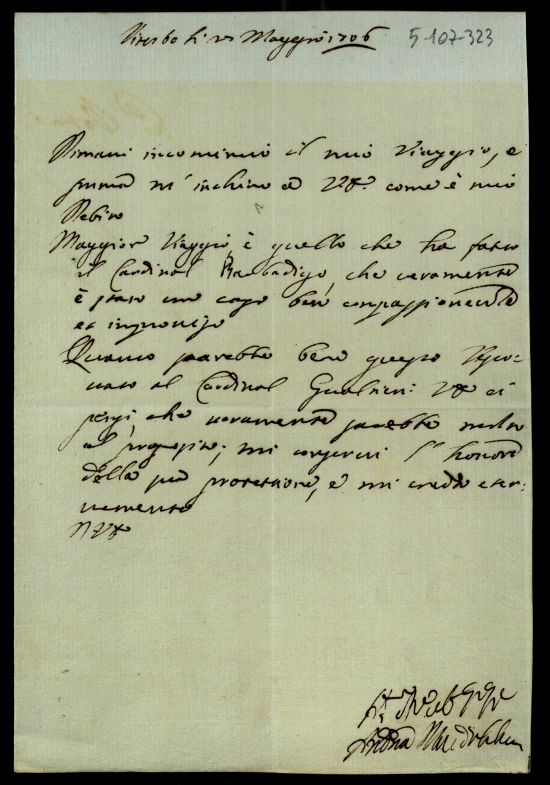 Viterbo li Maggio 1706
5-107-323
Dimani incomincio il mio Viaggio, e
prima m'inchino a come è mio
Debito
Maggior Viaggio è quello che ha fatto
il Cardinal Barbadigo, che veramente
è stato un caso ben compassionevole
et improviso
Quanto sarebbe bene questo Vesco-
vato al Cardinal Gualtieri ci
pensi, che veramente sarebbe molto
al proposito; mi conservi l'honore
della sua protettione, e mi creda eter-
namente